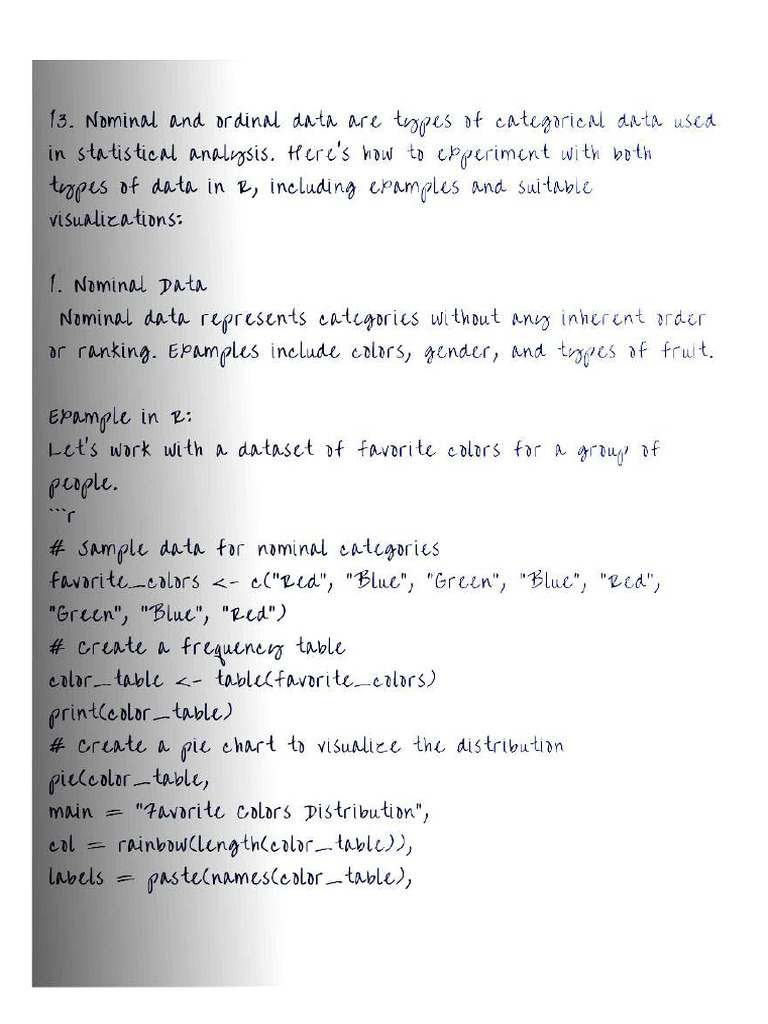 13. Nominal and ordinal data are types of categorical data used
in statistical analysis. Here's how to experiment with both
types of data in R, including examples and suitable
visualizations:
1. Nominal Data
Nominal data represents categories without any inherent order
or ranking. Examples include colors, gender, and types of fruit.
Example in R:
Let's work with a dataset of favorite colors for a group of
people.
```r
# Sample data for nominal categories
favorite_colors <- c("Red", "Blue", "Green", "Blue", "Red",
"Green", "Blue", "Red")
# Create a frequency table
color_table <- table(favorite_colors)
print(color_table)
# Create a pie chart to visualize the distribution
pie(color_table,
main = "Favorite Colors Distribution",
col = rainbow(length(color_table)),
labels = paste(names(color_table),